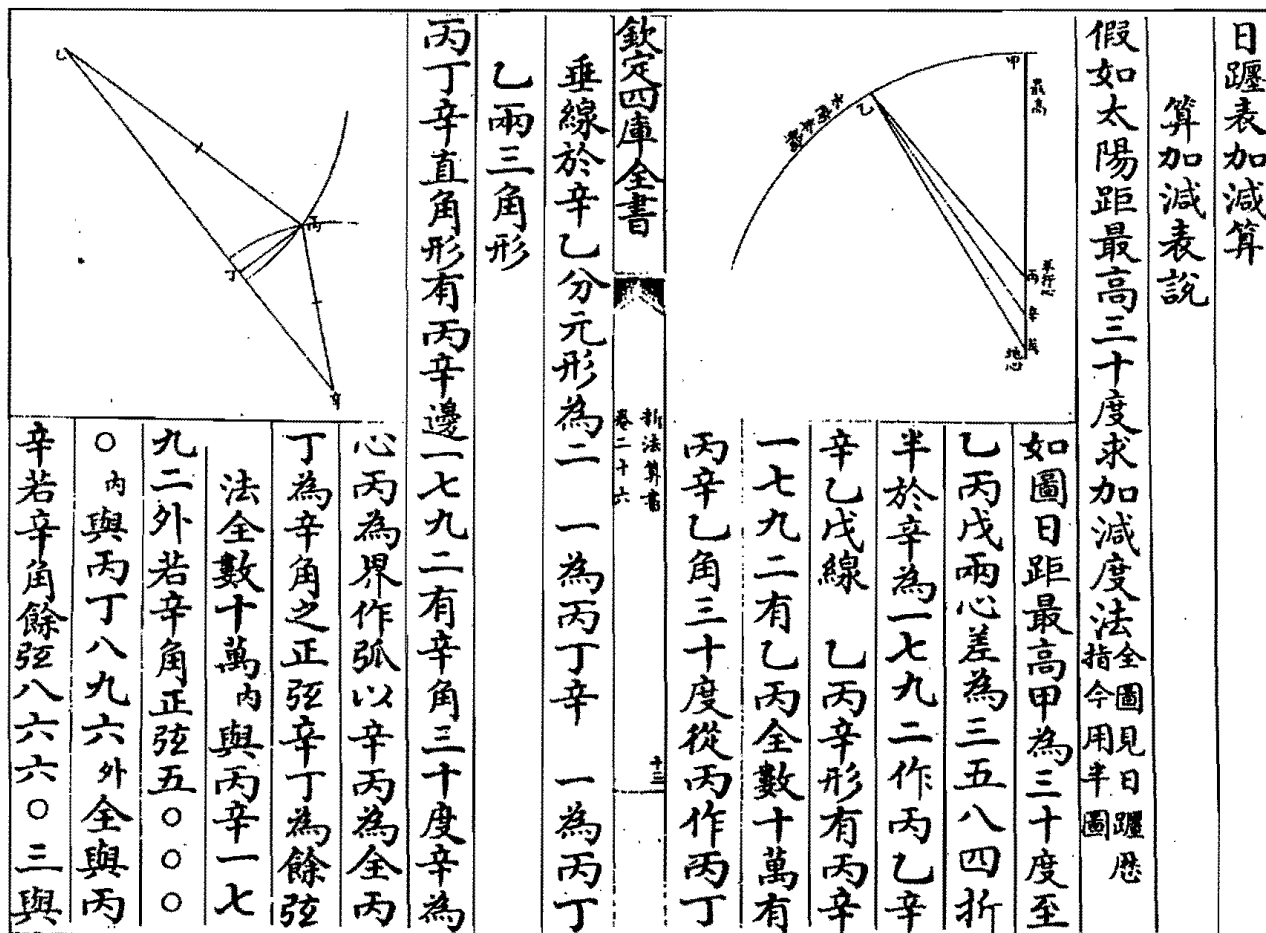 日躔表加減算
算加減表說
假如太陽距最高三十度求加減度法全圖見日躔歷指今用半圖
如圖日距最高甲為三十度至
乙丙戊兩心差為三五八四折
半於辛為一七九二作丙乙辛
辛乙戊線　乙丙辛形有丙辛
一七九二有乙丙全數十萬有
丙辛乙角三十度從丙作丙丁
甲
最高
乙
丙
平行心
辛
戊
地心
欽定四庫全書
新法算書
卷二十六
十三
垂線於辛乙分元形為二　一為丙丁辛　一為丙丁
乙兩三角形
丙丁辛直角形有丙辛邊一七九二有辛角三十度辛為
心丙為界作弧以辛丙為全丙
丁為辛角之正弦辛丁為餘弦
法全數十萬內與丙辛一七
九二外若辛角正弦五〇〇〇
〇內與丙丁八九六外全與丙
辛若辛角餘弦八六六〇三與
乙
丙
丁
辛